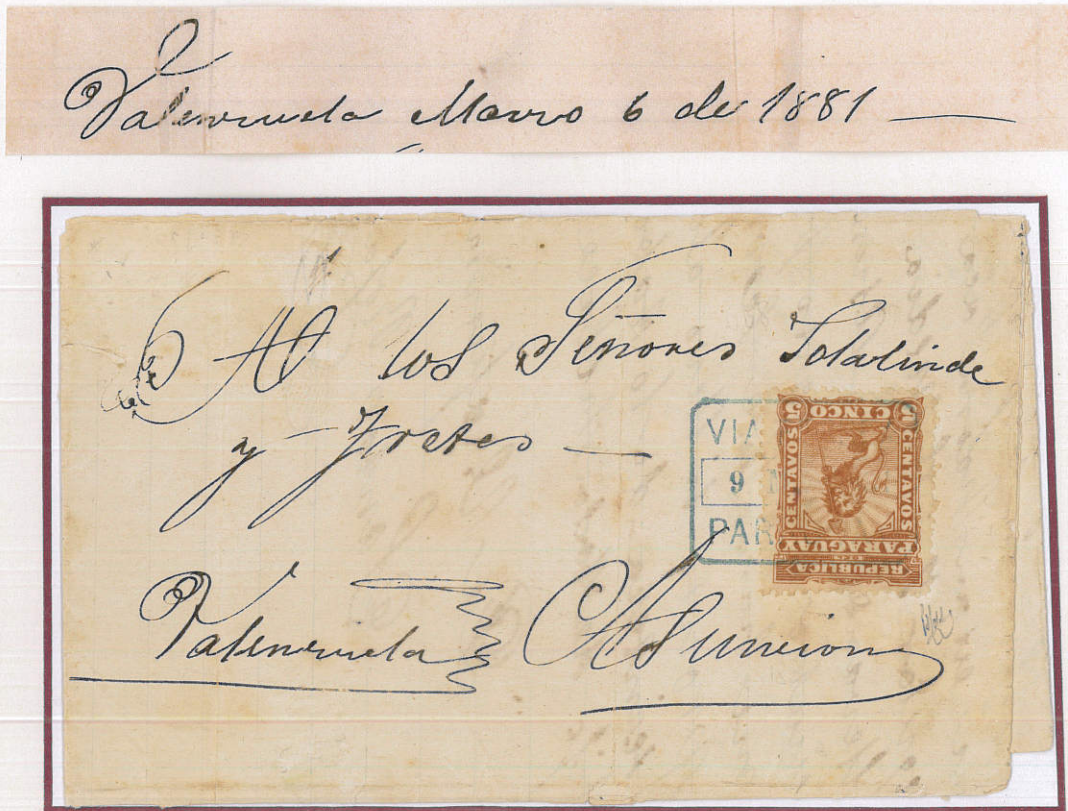 Valenzuela Marzo 6 de 1881
A los Señores Solalinde
y Fretes
VIA
9
PAR
5 CINCO 5
CENTAVOS CENTAVOS
PARAGUAY
REPUBLICA
Valenzuela Asuncion